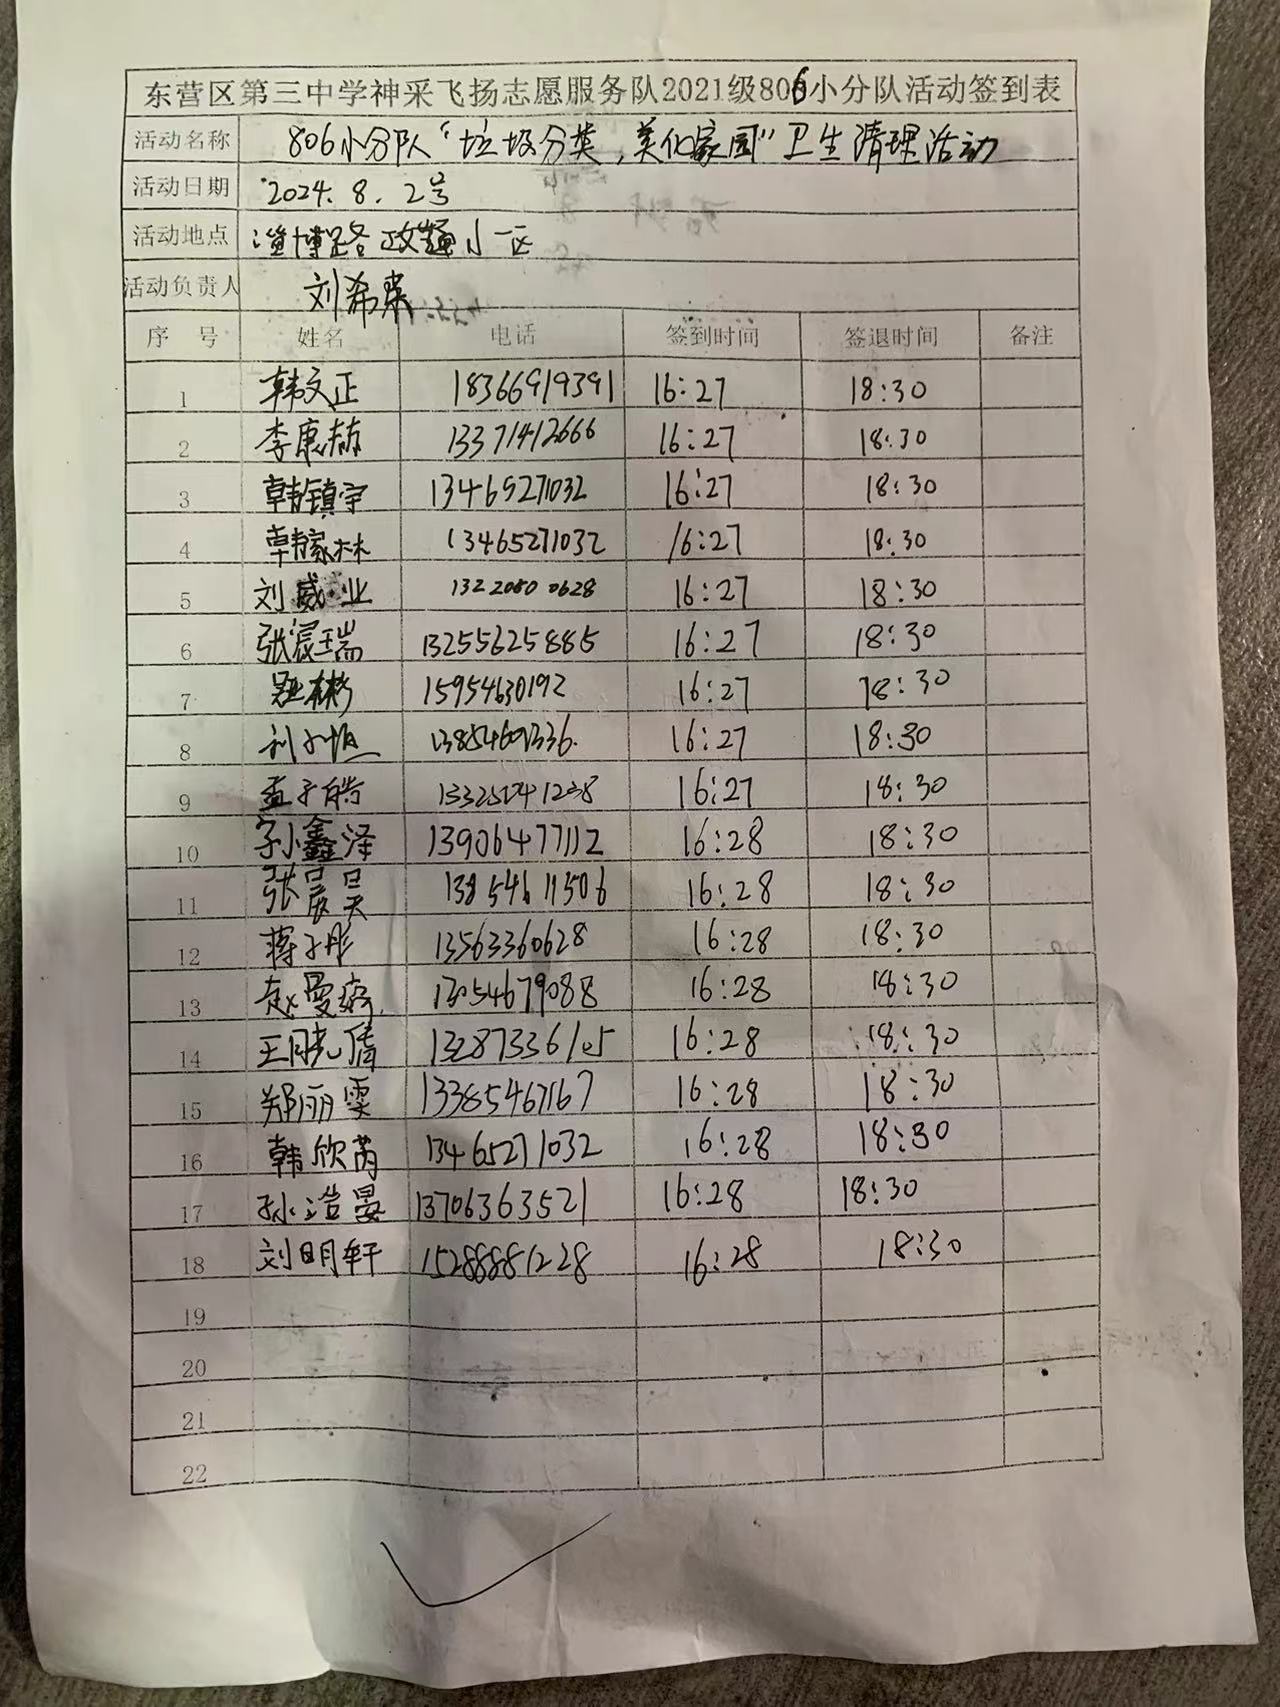 东营区第三中学神采飞扬志愿服务队2021级806小分队活动签到表
活动名称 806小分队“垃圾分类,美化家园”卫生清理活动
活动日期 2024.8.2号
活动地点 淄博路政通小区
活动负责人 刘希来
序号 姓名 电话 签到时间 签退时间 备注
1 韩文正 18366919391 16:27 18:30
2 李康赫 13371412666 16:27 18:30
3 韩镇宇 13465271032 16:27 18:30
4 韩家林 13465271032 16:27 18:30
5 刘威业 1322080 0628 16:27 18:30
6 张宸瑞 13255625885 16:27 18:30
7 15954630192 16:27 18:30
8 刘子恒 16:27 18:30
9 孟子皓 16:27 18:30
10 李小鑫泽 13906477112 16:28 18:30
11 张宸昊 13854611506 16:28 18:30
12 蒋子彤 13563360628 16:28 18:30
13 赵曼 16:28 18:30
14 王晓倩 16:28 18:30
15 郑丽雯 13385467167 16:28 18:30
16 韩欣芮 13465271032 16:28 18:30
17 孙浩晏 13706363521 16:28 18:30
18 刘明轩 15288881228 16:28 18:30
19
20
21
22